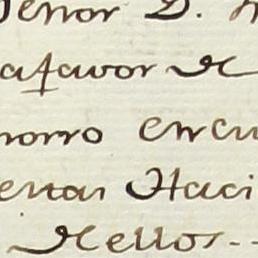 Señor D.
afavor de
horro en cu
entas Haci
de ellos.